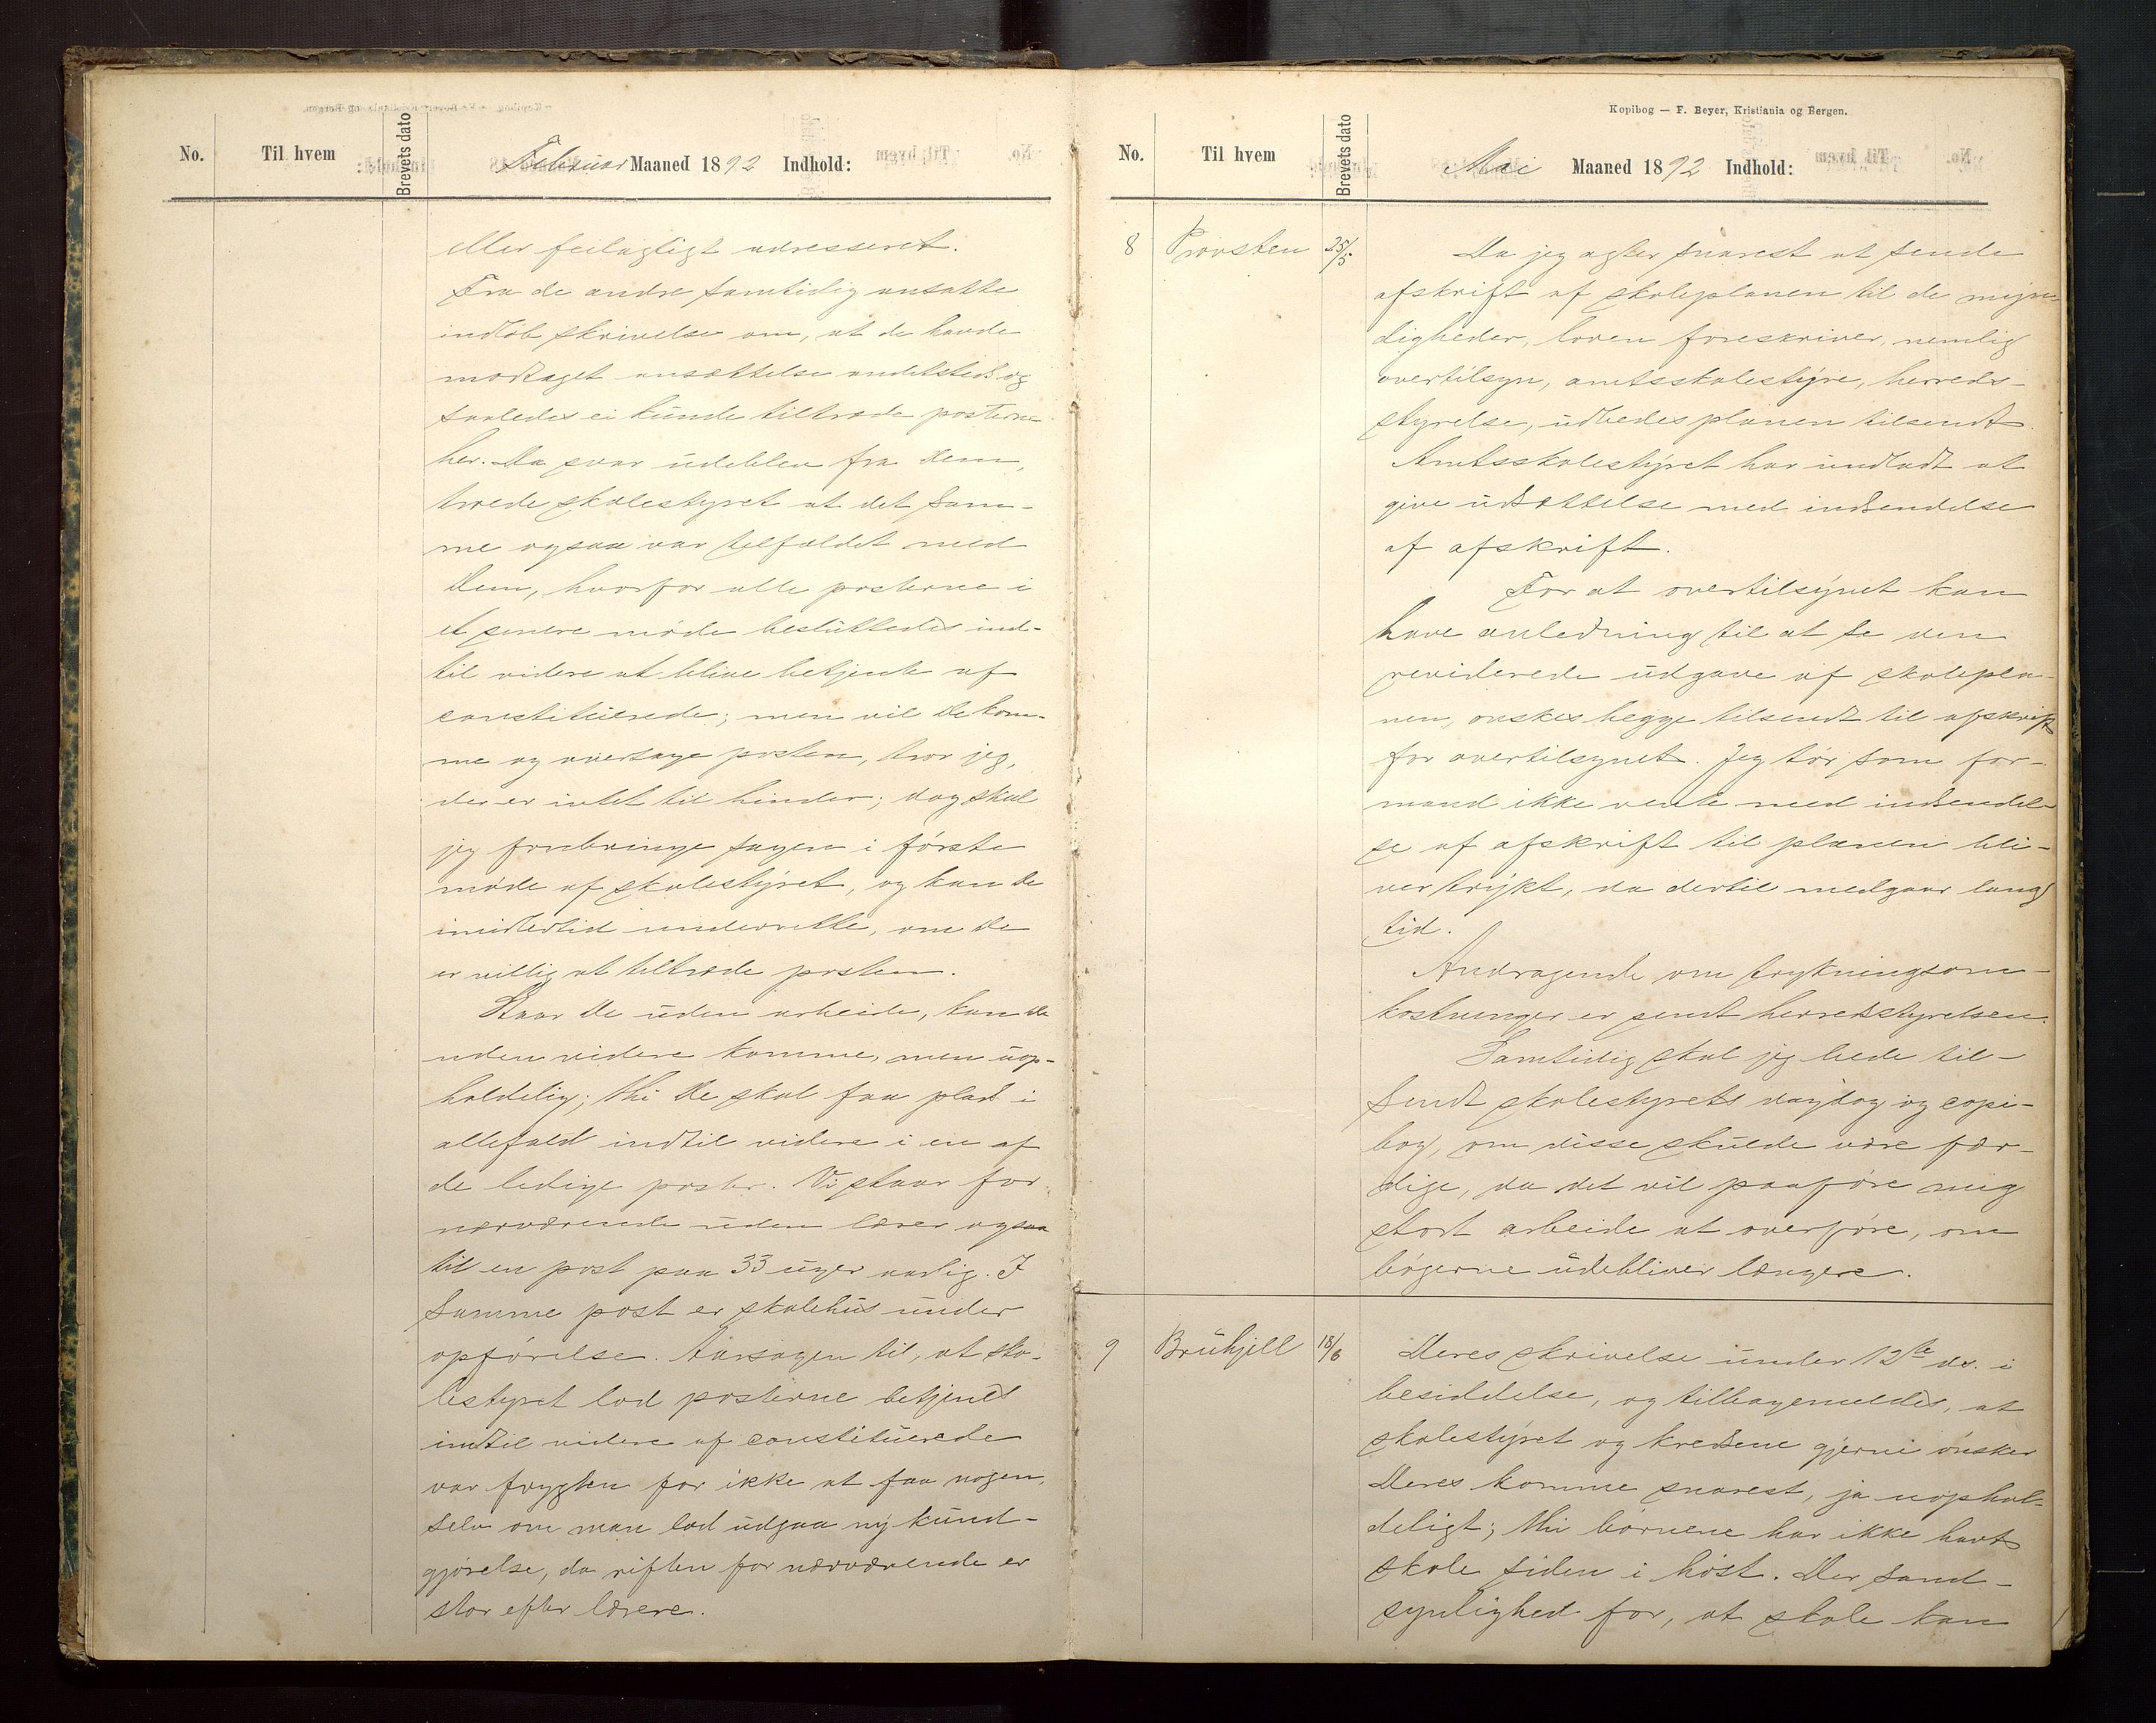 No.
Til hvem
Brevets dato
Februar Maaned 1892 Indhold:
eller feilagtigt adresseret.
Fra de andre samtidig ansatte
indløb skrivelse om, at de havde
modtaget ansættelse andetsteds og
saaledes ei kunde tiltræde posterne
her. Da svar udeblev fra Dem,
troede skolestyret at det sam-
me ogsaa var tilfældet med
Dem, hvorfor alle posterne i
et senere møde besluttedes ind-
til videre at blive betjent af
constituerede; men vil De kom-
me og overtage posten, tror jeg,
der er intet til hinder; dog skal
jeg frembringe sagen i første
møde af skolestyret, og kan De
imidlertid underrette, om De
er villig at tiltræde posten.
Staar De uden arbeide, kan De
uden videre komme, men uop-
holdelig; thi De skal faa plads i
allefald indtil videre i en af
de ledige poster. Vi staar for
nærværende uden lærer ogsaa
til en post paa 33 uger aarlig. I
Samme post er skolehus under
opførelse. Aarsagen til, at sko-
lestyret lod posterne betjent
indtil videre af constituerede
var frygten for ikke at faa nogen,
selv om man lod udgaa ny kund-
gjørelse, da riften for nærværende er
stor efter lærere.
Kopibog — F. Beyer, Kristiania og Bergen.
No.
Til hvem
Brevets dato
Mai Maaned 1892 Indhold:
8 Provsten 25/5 Da jeg agter snarest at sende
afskrift af skoleplanen til de myn-
digheder, loven foreskriver, nemlig
overtilsyn, amtsskolestyre, herreds-
styrelse, udbedes planen tilsendt.
Amtsskolestyret har undladt at
give udsættelse med indsendelse
af afskrift.
For at overtilsynet kan
have anledning til at se den
reviderede udgave af skolepla-
nen, ønskes begge tilsendt til afskrift
for overtilsynet. Jeg tør som for-
mand ikke vente med indsendel-
se af afskrift til planen bli-
ver trykt, da dertil medgaar lang
tid.
Andragende om trykningsom-
kostninger er sendt herredsstyrelsen.
Samtidig skal jeg bede til-
sendt skolestyrets dagbog og copi-
bog, om disse skulde være fær-
dige, da det vil paaføre mig
stort arbeide at overføre, om
bøgerne udebliver længere.
9 Bruhjell 18/6 Deres skrivelse under 12te ds. i
besiddelse, og tilbagemeldes, at
skolestyret og kredsene gjerne ønsker
Deres komme snarest, ja uophol-
deligt; thi børnene har ikke havt
skole siden i høst. Der sand-
synlighed for, at skole kan